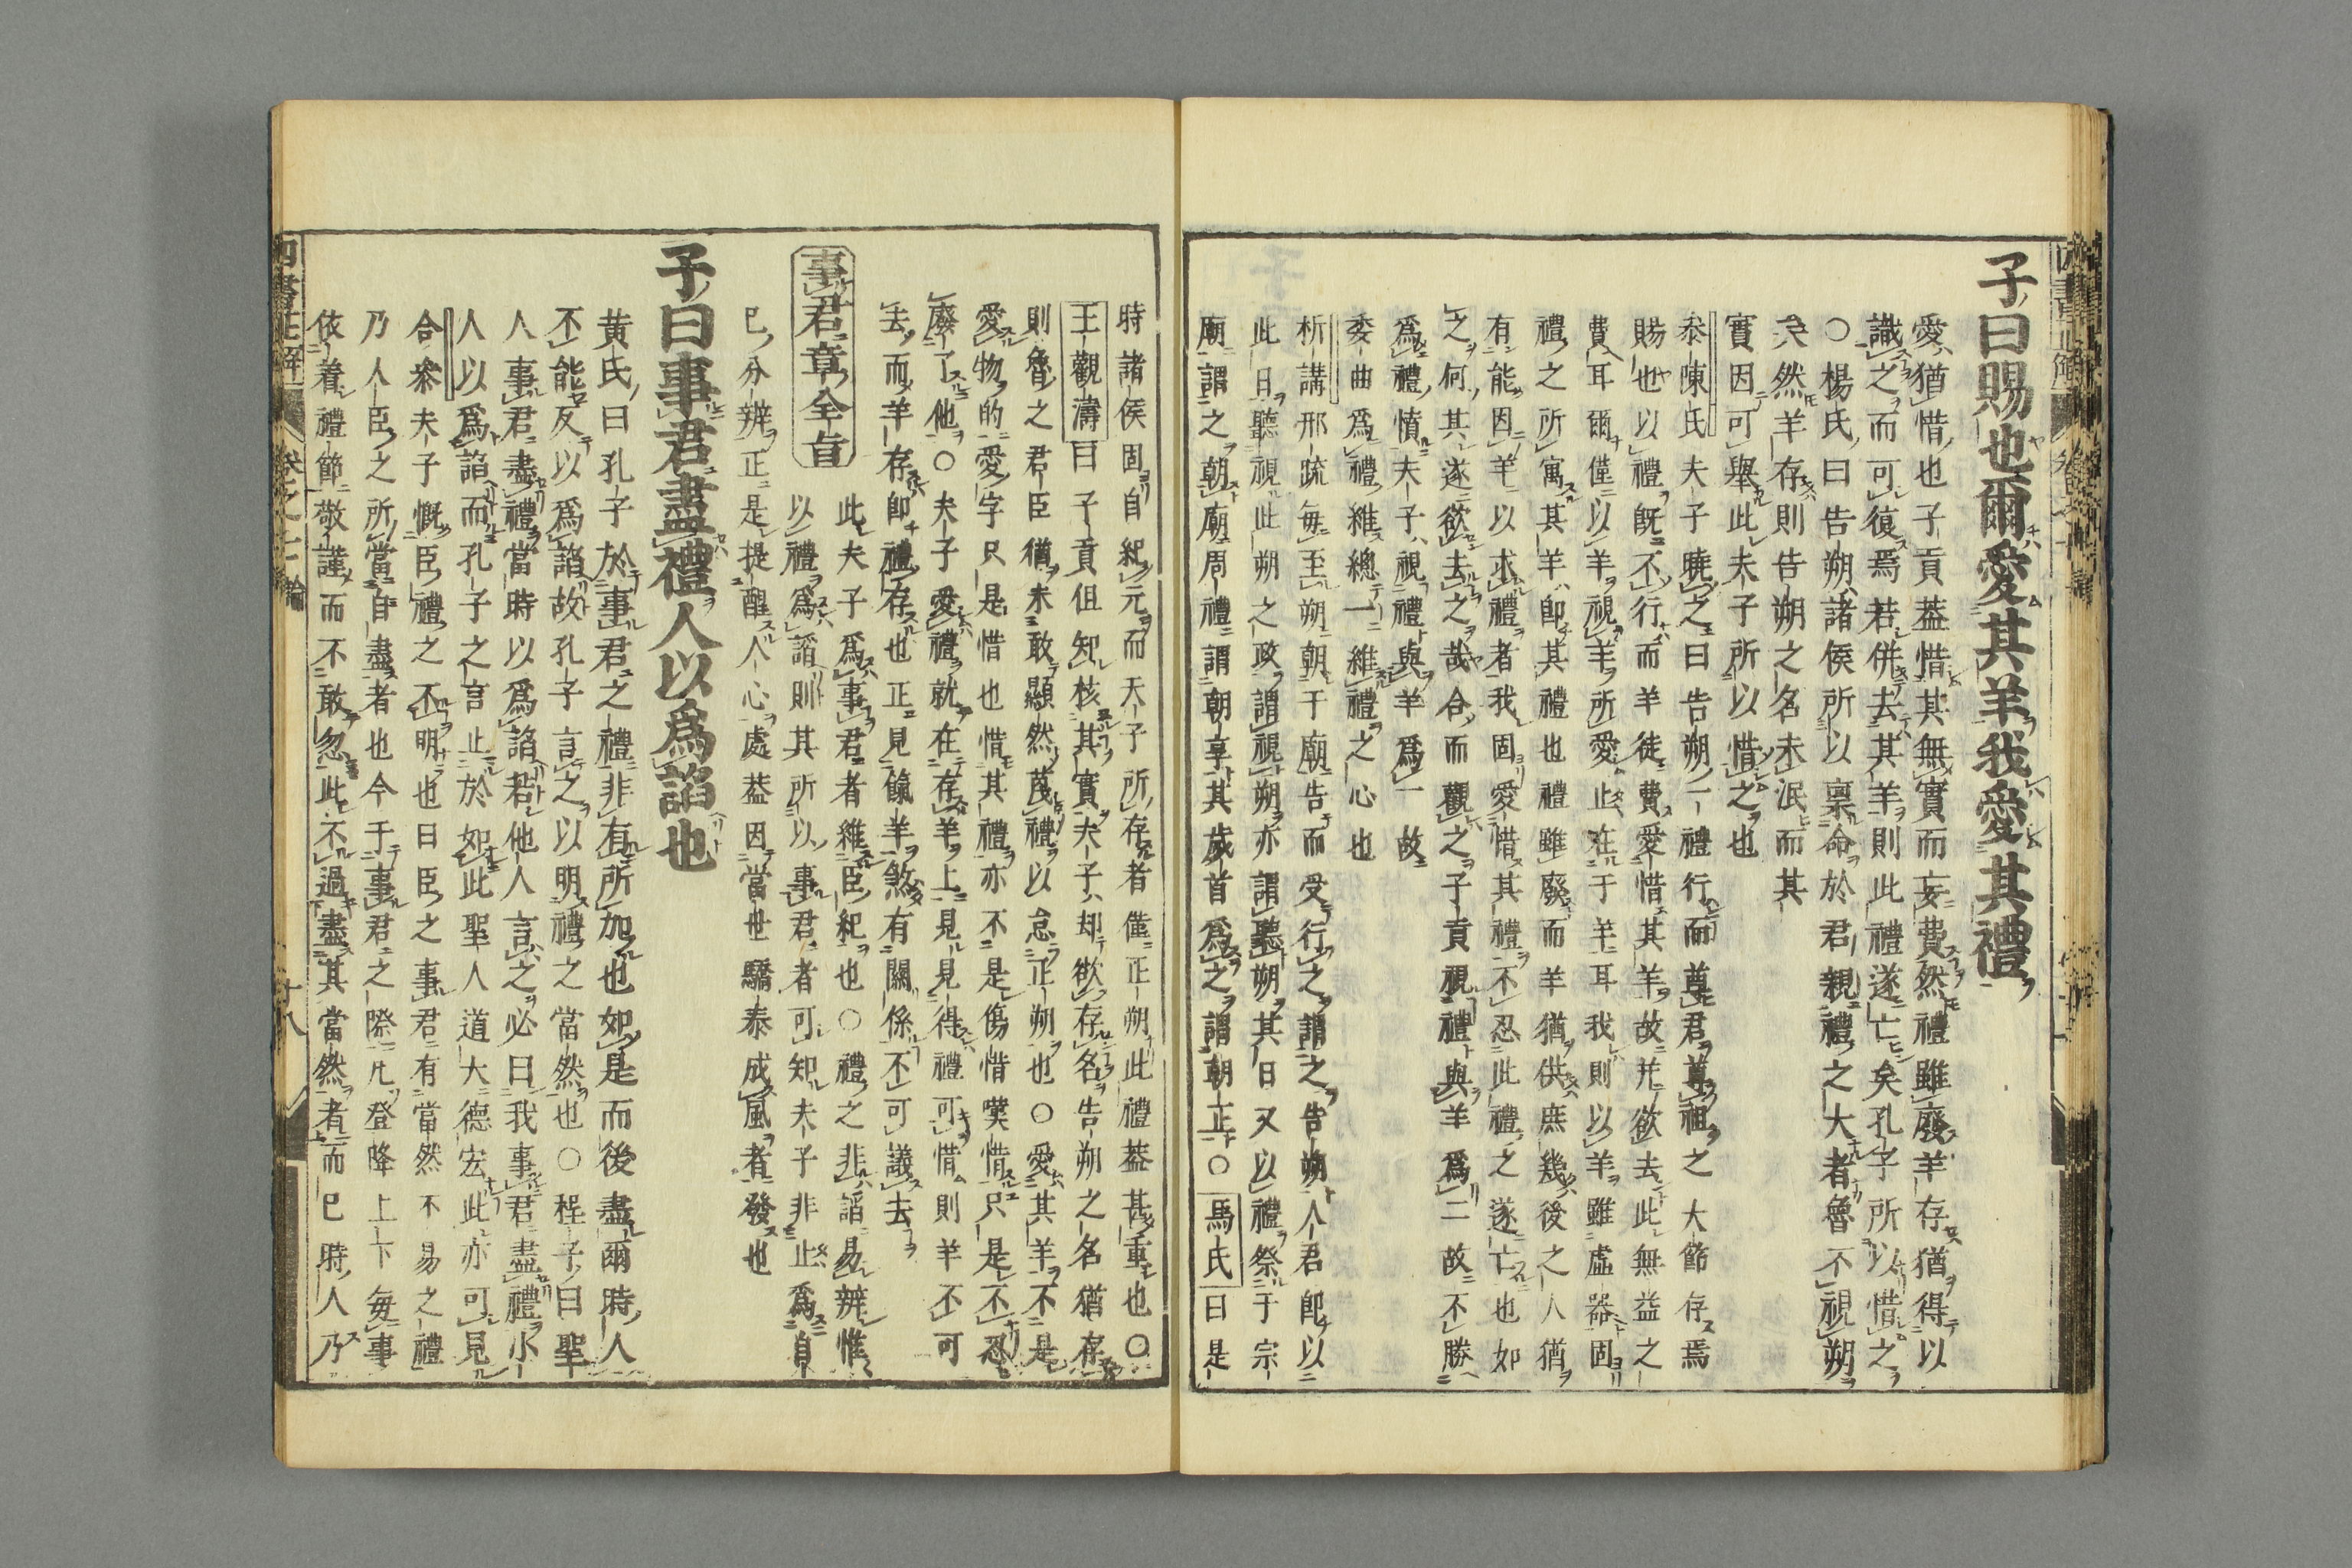 子曰賜也爾愛其羊我愛其禮
愛猶惜也子貢葢惜其無實而妄費然禮雖廢羊存猶得以
識之而可復焉若併去其羊則此禮遂亡矣孔子所以惜之
○楊氏曰告朔諸侯所以稟命於君親禮之大者魯不視朔
矣然羊存則告朔之名未泯而其
實因可舉此夫子所以惜之也
夫子曉之曰告朔一禮行而尊君尊祖之大節存焉
賜也以禮旣不行而羊徒費愛惜其羊故并欲去此無益之
費耳爾僅以羊視羊所愛止在于羊耳我則以羊雖虛器固
禮之所寓其羊卽其禮也禮雖廢而羊猶供庶幾後之人猶
有能因羊以求禮者我固愛惜其禮不忍此禮之遂亡也如
之何其遂欲去之哉合而觀之子貢視禮與羊爲二故不勝
爲禮憤夫子視禮與羊爲一故
委曲爲禮維總一維禮之心也
析講邢疏每至朔朝于廟告而受行之謂之告朔人君卽以
此日聽視此朔之政謂視朔亦謂聽朔其日又以禮祭于宗
廟謂之朝廟周禮謂朝享其歲首爲之謂朝正○馬氏曰是
時諸侯固自紀元而天子所存者僅正朔此禮葢甚重也○
王觀濤曰子貢但知核其實夫子却欲存名告朔之名猶存
則魯之君臣猶未敢顯然蔑禮以怠正朔也○愛其羊不是
愛物的愛字只是惜也惜其禮亦不是傷惜嘆惜只是不忍
廢了他○夫子愛禮就在存羊上見見得禮可惜則羊不可
去而羊存卽禮存也正見餼羊煞有關係不可議去
事君章全旨
此夫子爲事君者維臣紀也○禮之非諂易辨惟
以禮爲諂則其所以事君者可知夫子非止爲自
已分辨正是提醒人心處葢因當世驕泰成風者發也
子曰事君盡禮人以爲諂也
黃氏曰孔子於事君之禮非有所加也如是而後盡爾時人
不能反以爲諂故孔子言之以明禮之當然也○程子曰聖
人事君盡禮當時以爲諂若他人言之必曰我事君盡禮小
人以爲諂而孔子之言止於如此聖人道大德宏此亦可見
合參夫子慨臣禮之不明也曰臣之事君有當然不易之禮
乃人臣之所當自盡者也今于事君之際凡登降上下每事
依着禮節敬謹而不敢忽此不過盡其當然者而已時人乃
四書正解
卷之
十八